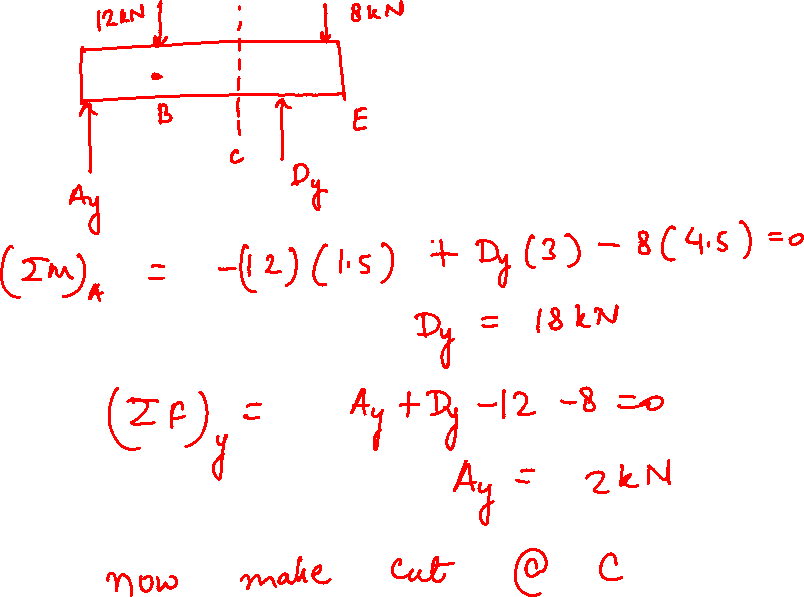 12kN 8kN
B
E
C
Ay Dy
(ΣM)A = -(12)(1.5) + Dy(3) - 8(4.5) = 0
Dy = 18kN
(ΣF)y = Ay + Dy - 12 - 8 = 0
Ay = 2kN
now make cut @ C